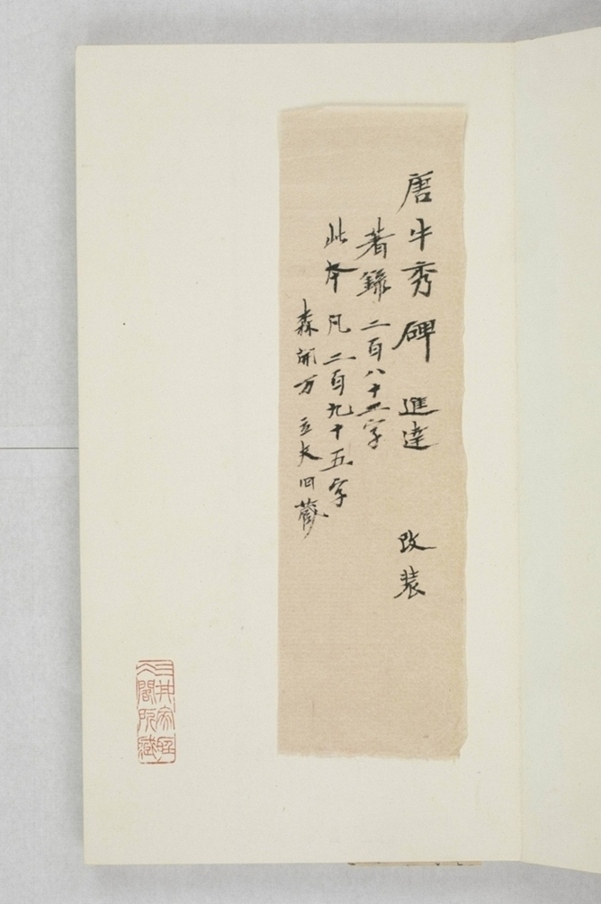 唐牛秀碑 進達 改装
著録二百八十 字
此本凡二百九十五字
森開万 立夫旧蔵
三井家聽
冰閣所藏